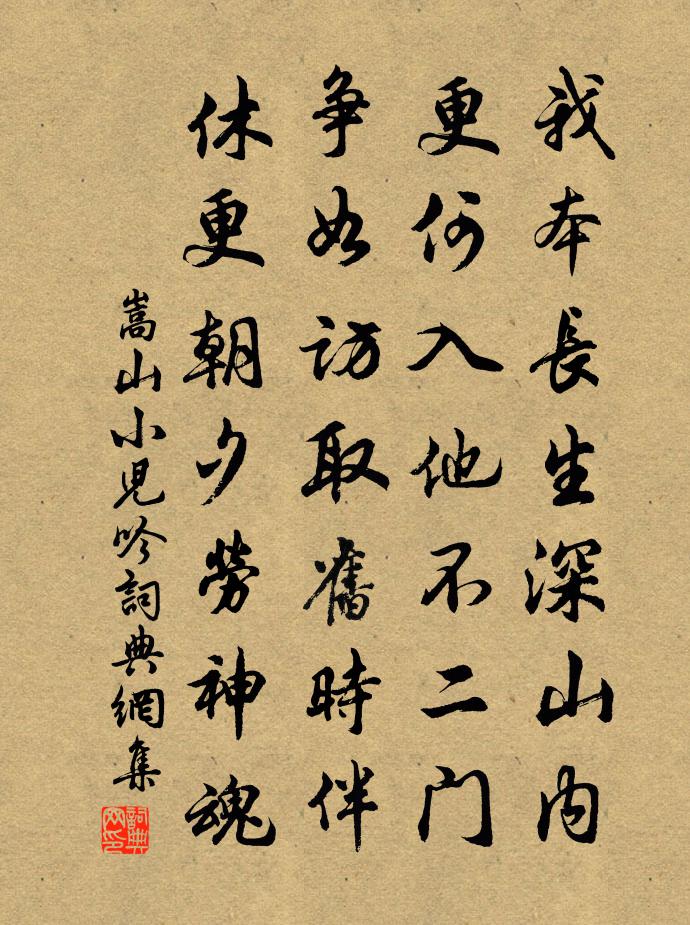 我本長生深山內
更何入他不二門
爭如訪取舊時伴
休更朝夕勞神魂
嵩山小児吟詞典網集
詞典网印